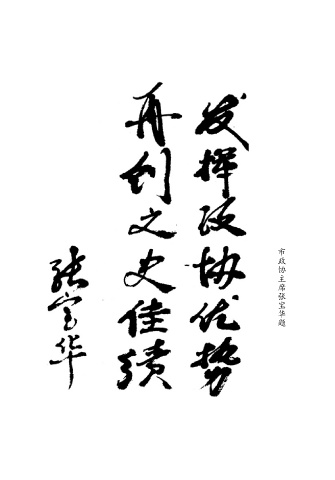 发挥政协优势
再创文史佳绩
张宝华
市政协主席张宝华题